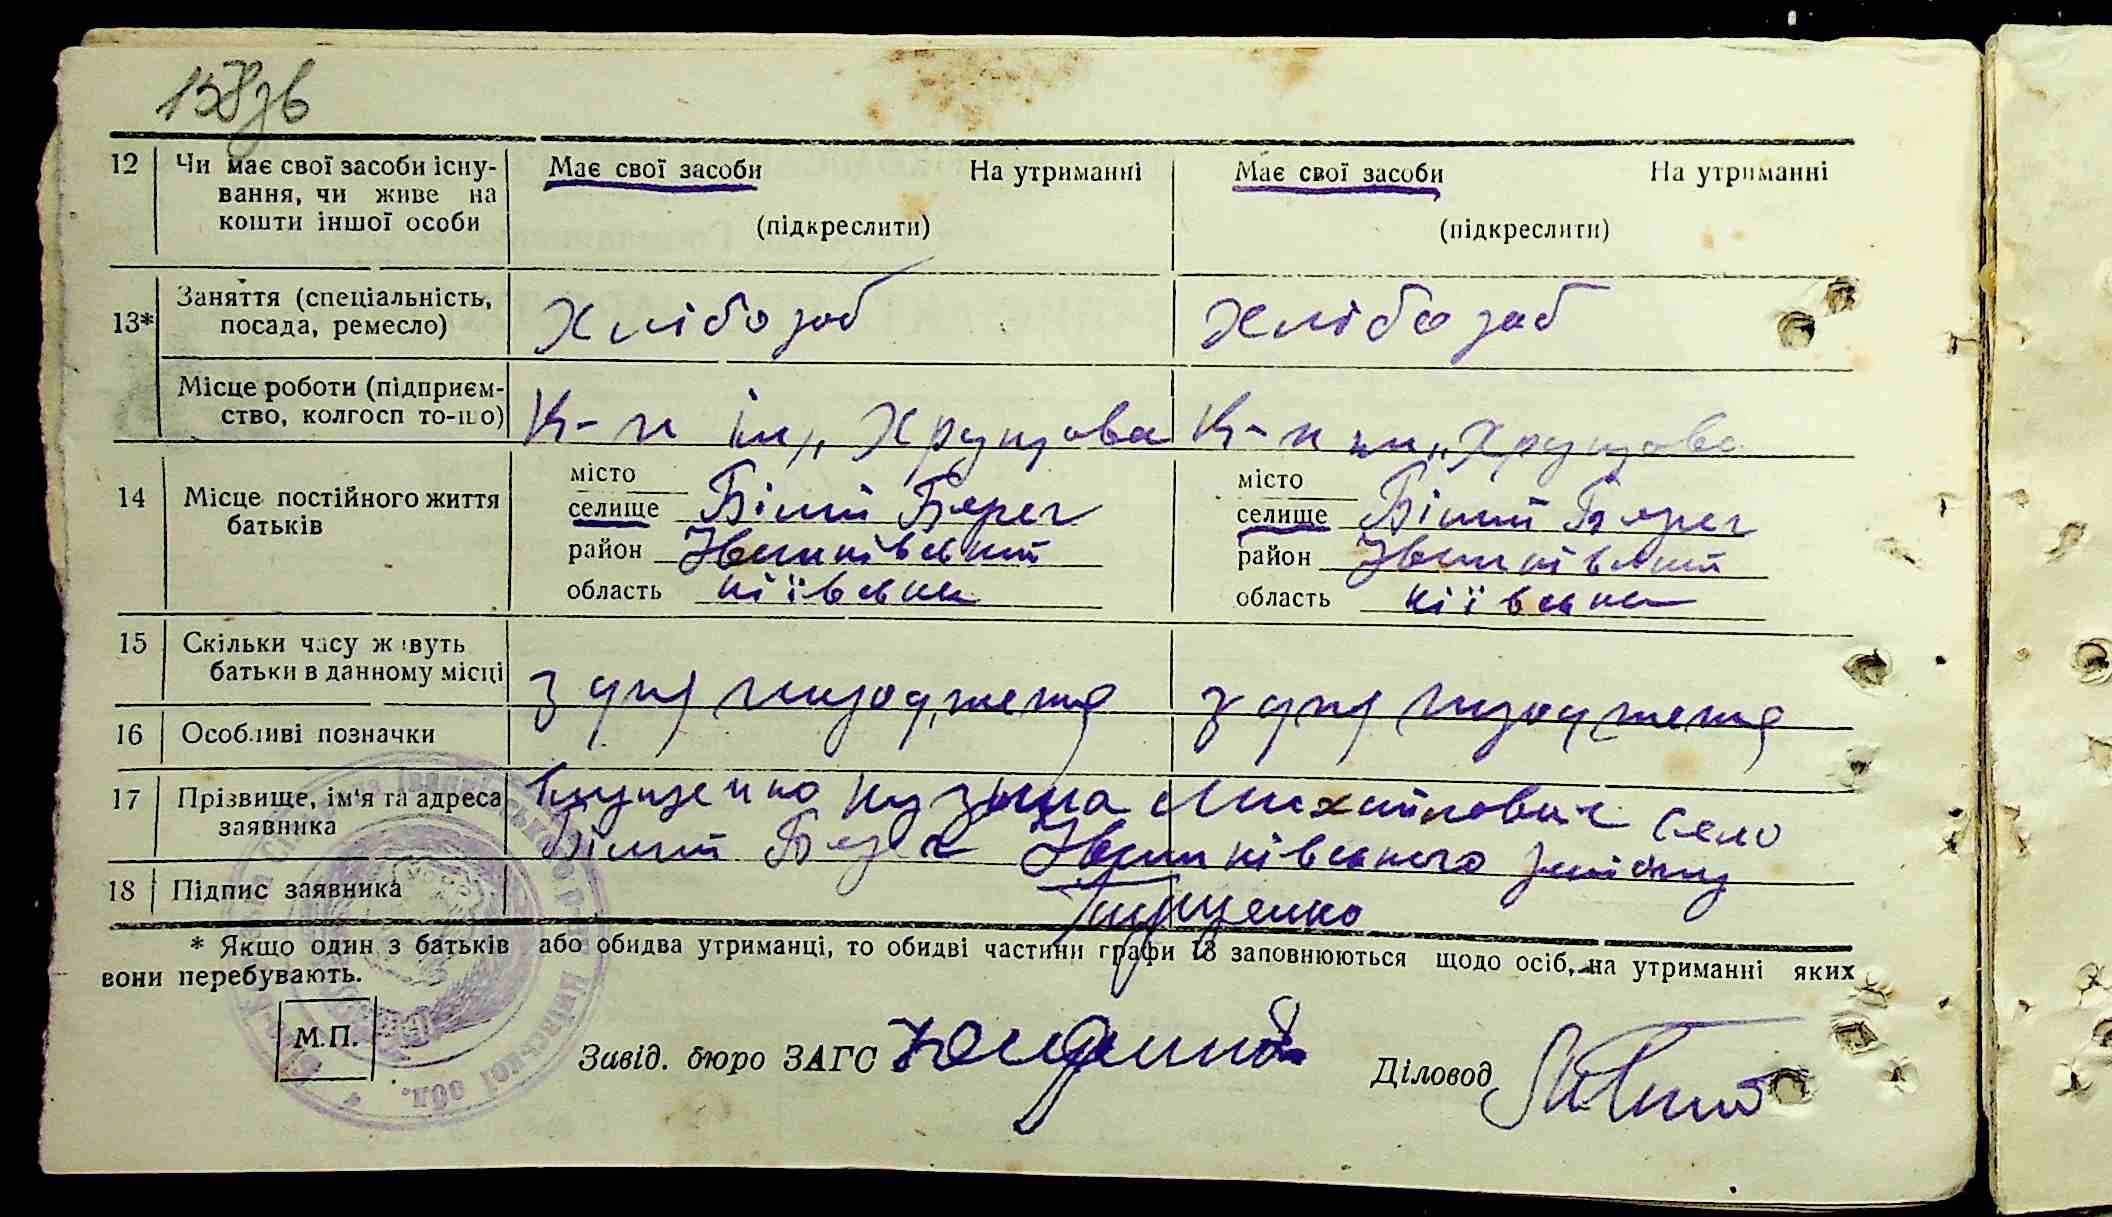 158зв
12 Чи має свої засоби існу- Має свої засоби На утриманні Має свої засоби На утриманні
вання, чи живе на
кошти іншої особи (підкреслити) (підкреслити)
13* Заняття (спеціальність, Хлібороб Хлібороб
посада, ремесло)
Місце роботи (підприєм- К-п ім, Хрущова К-п ім, Хрущова
ство, колгосп то-що)
14 Місце постійного життя місто місто
батьків селище Білий Берег селище Білий Берег
район Іванківський район Іванківський
область київська область київська
15 Скільки часу живуть
батьки в данному місці з дня народження з дня народження
16 Особливі позначки
17 Прізвище, ім'я та адреса кузьма Михайлович село
заявника Білий Берег Іванківського району
18 Підпис заявника
* Якщо один з батьків або обидва утриманці, то обидві частини графи 13 заповнюються щодо осіб, на утриманні яких
вони перебувають.
М.П.
Завід. бюро ЗАГС
Діловод
Київської обл.